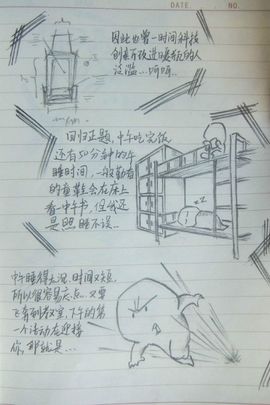 DATE NO.
因此也曾一时间科技
创意不改进日暴乱的人
泛滥...呵呵
回归正题,中午吃完饭
还有50分钟的午
睡时间,一般勤奋
的童鞋会在床上
看一中午书,但我还
是照睡不误...
zZ
中午睡得太沉,时间又短,
所以很容易 又要
飞奔到教室,下午的第
一个活动在迎接
你,那就是...